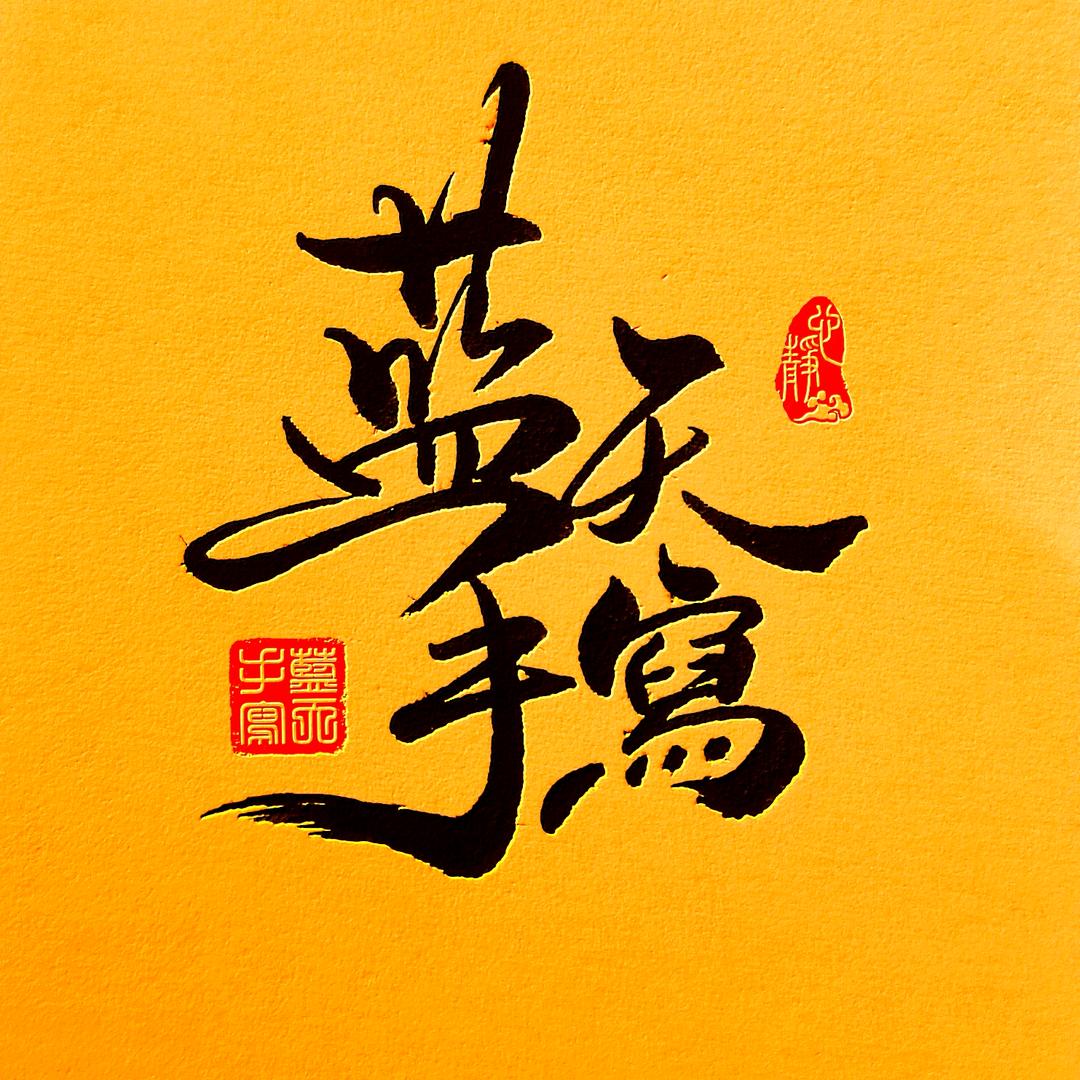 藍天
手寫
心靜
藍天
手寫